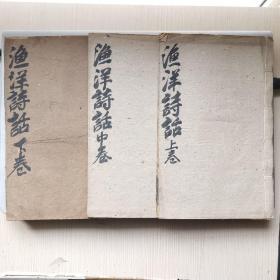 漁洋詩話上卷
漁洋詩話中卷
漁洋詩話下卷